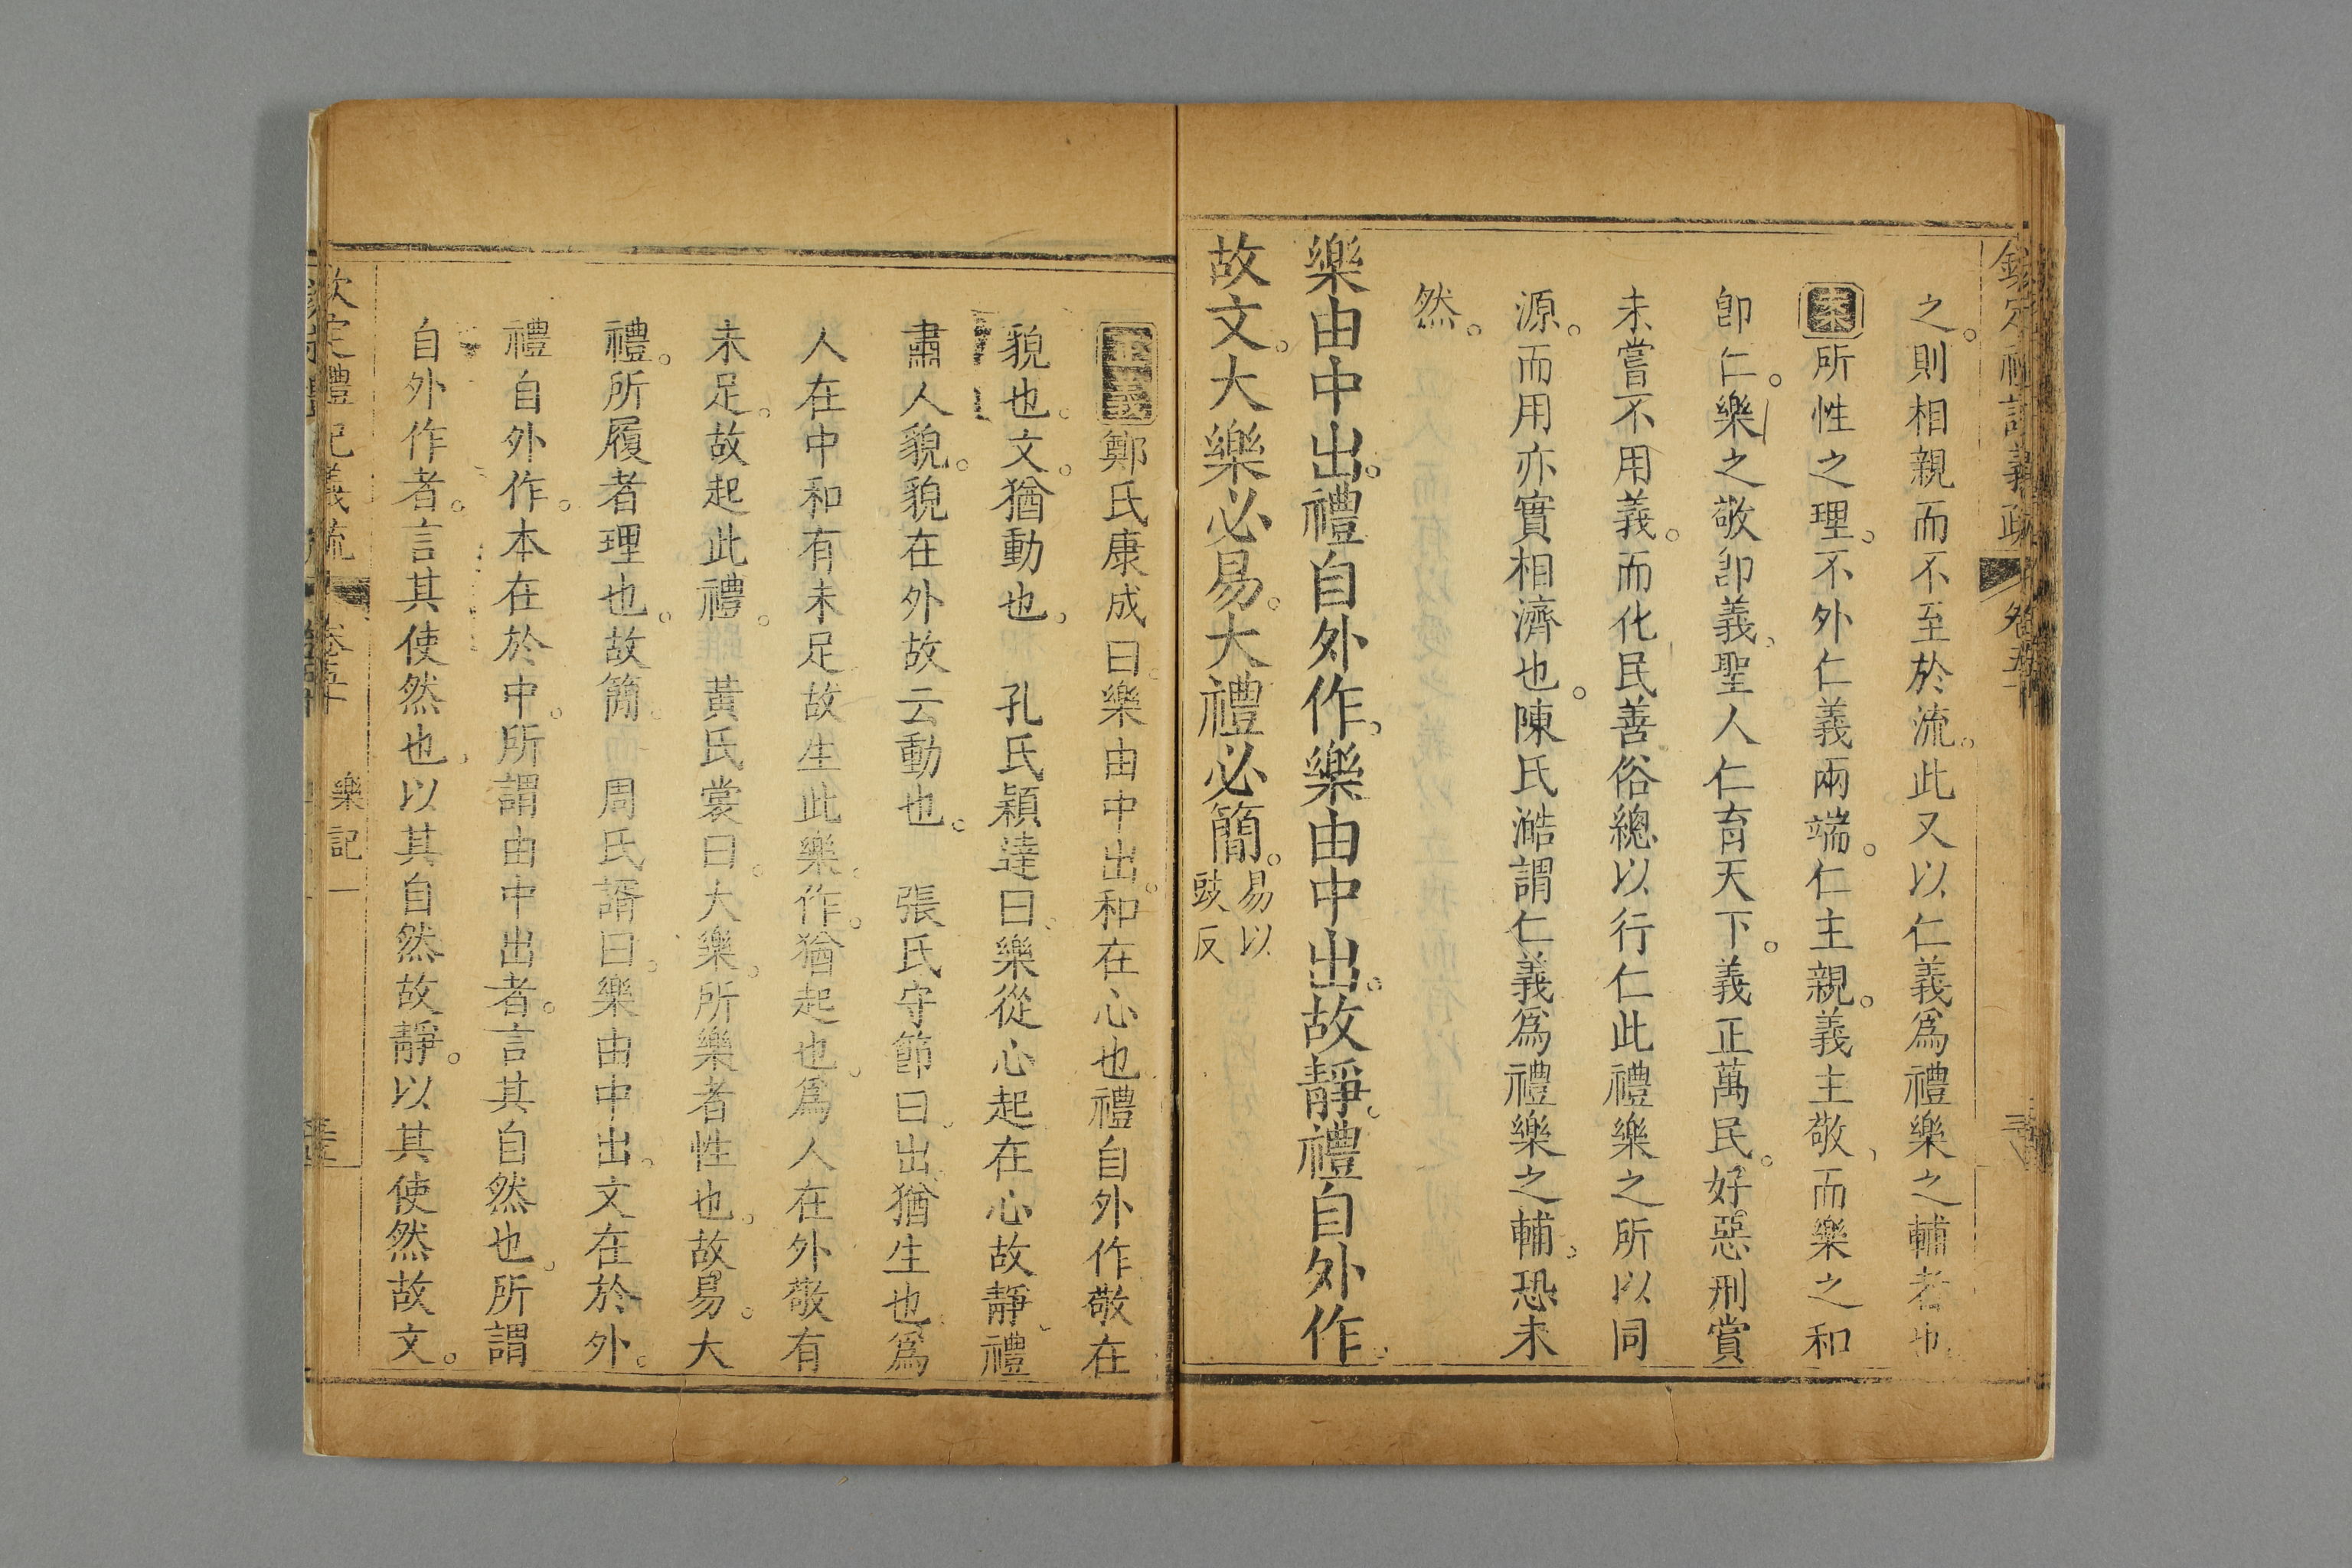 欽定禮記義疏 卷五十
之。則相親而不至於流。此又以仁義爲禮樂之輔者也。
案所性之理。不外仁義兩端。仁主親。義主敬、而樂之和
卽仁。樂之敬卽義、聖人仁育天下。義正萬民。好惡刑賞
未嘗不用義。而化民善俗總以行仁此禮樂之所以同
源。而用亦實相濟也。陳氏澔謂仁義爲禮樂之輔、恐未
然。
樂由中出。禮自外作。樂由中出。故靜、禮自外作。
故文。大樂必易。大禮必簡。易以
豉反
正義鄭氏康成曰。樂由中出。和在心也禮自外作敬在
貌也。文。猶動也。 孔氏穎達曰、樂從心起在心故靜、禮
肅人貌。貌在外故云動也。 張氏守節曰、出、猶生也、爲
人在中和有未足故生此樂。作。猶起也。爲人在外敬有
未足。故起此禮。 黃氏裳曰。大樂。所樂者性也。故易。大
禮。所履者理也。故簡。 周氏諝曰。樂由中出。文在於外。
禮自外作。本在於中。所謂由中出者。言其自然也、所謂
自外作者。言其使然也、以其自然故靜。以其使然故文。
欽定禮記義疏 卷五十 樂記一